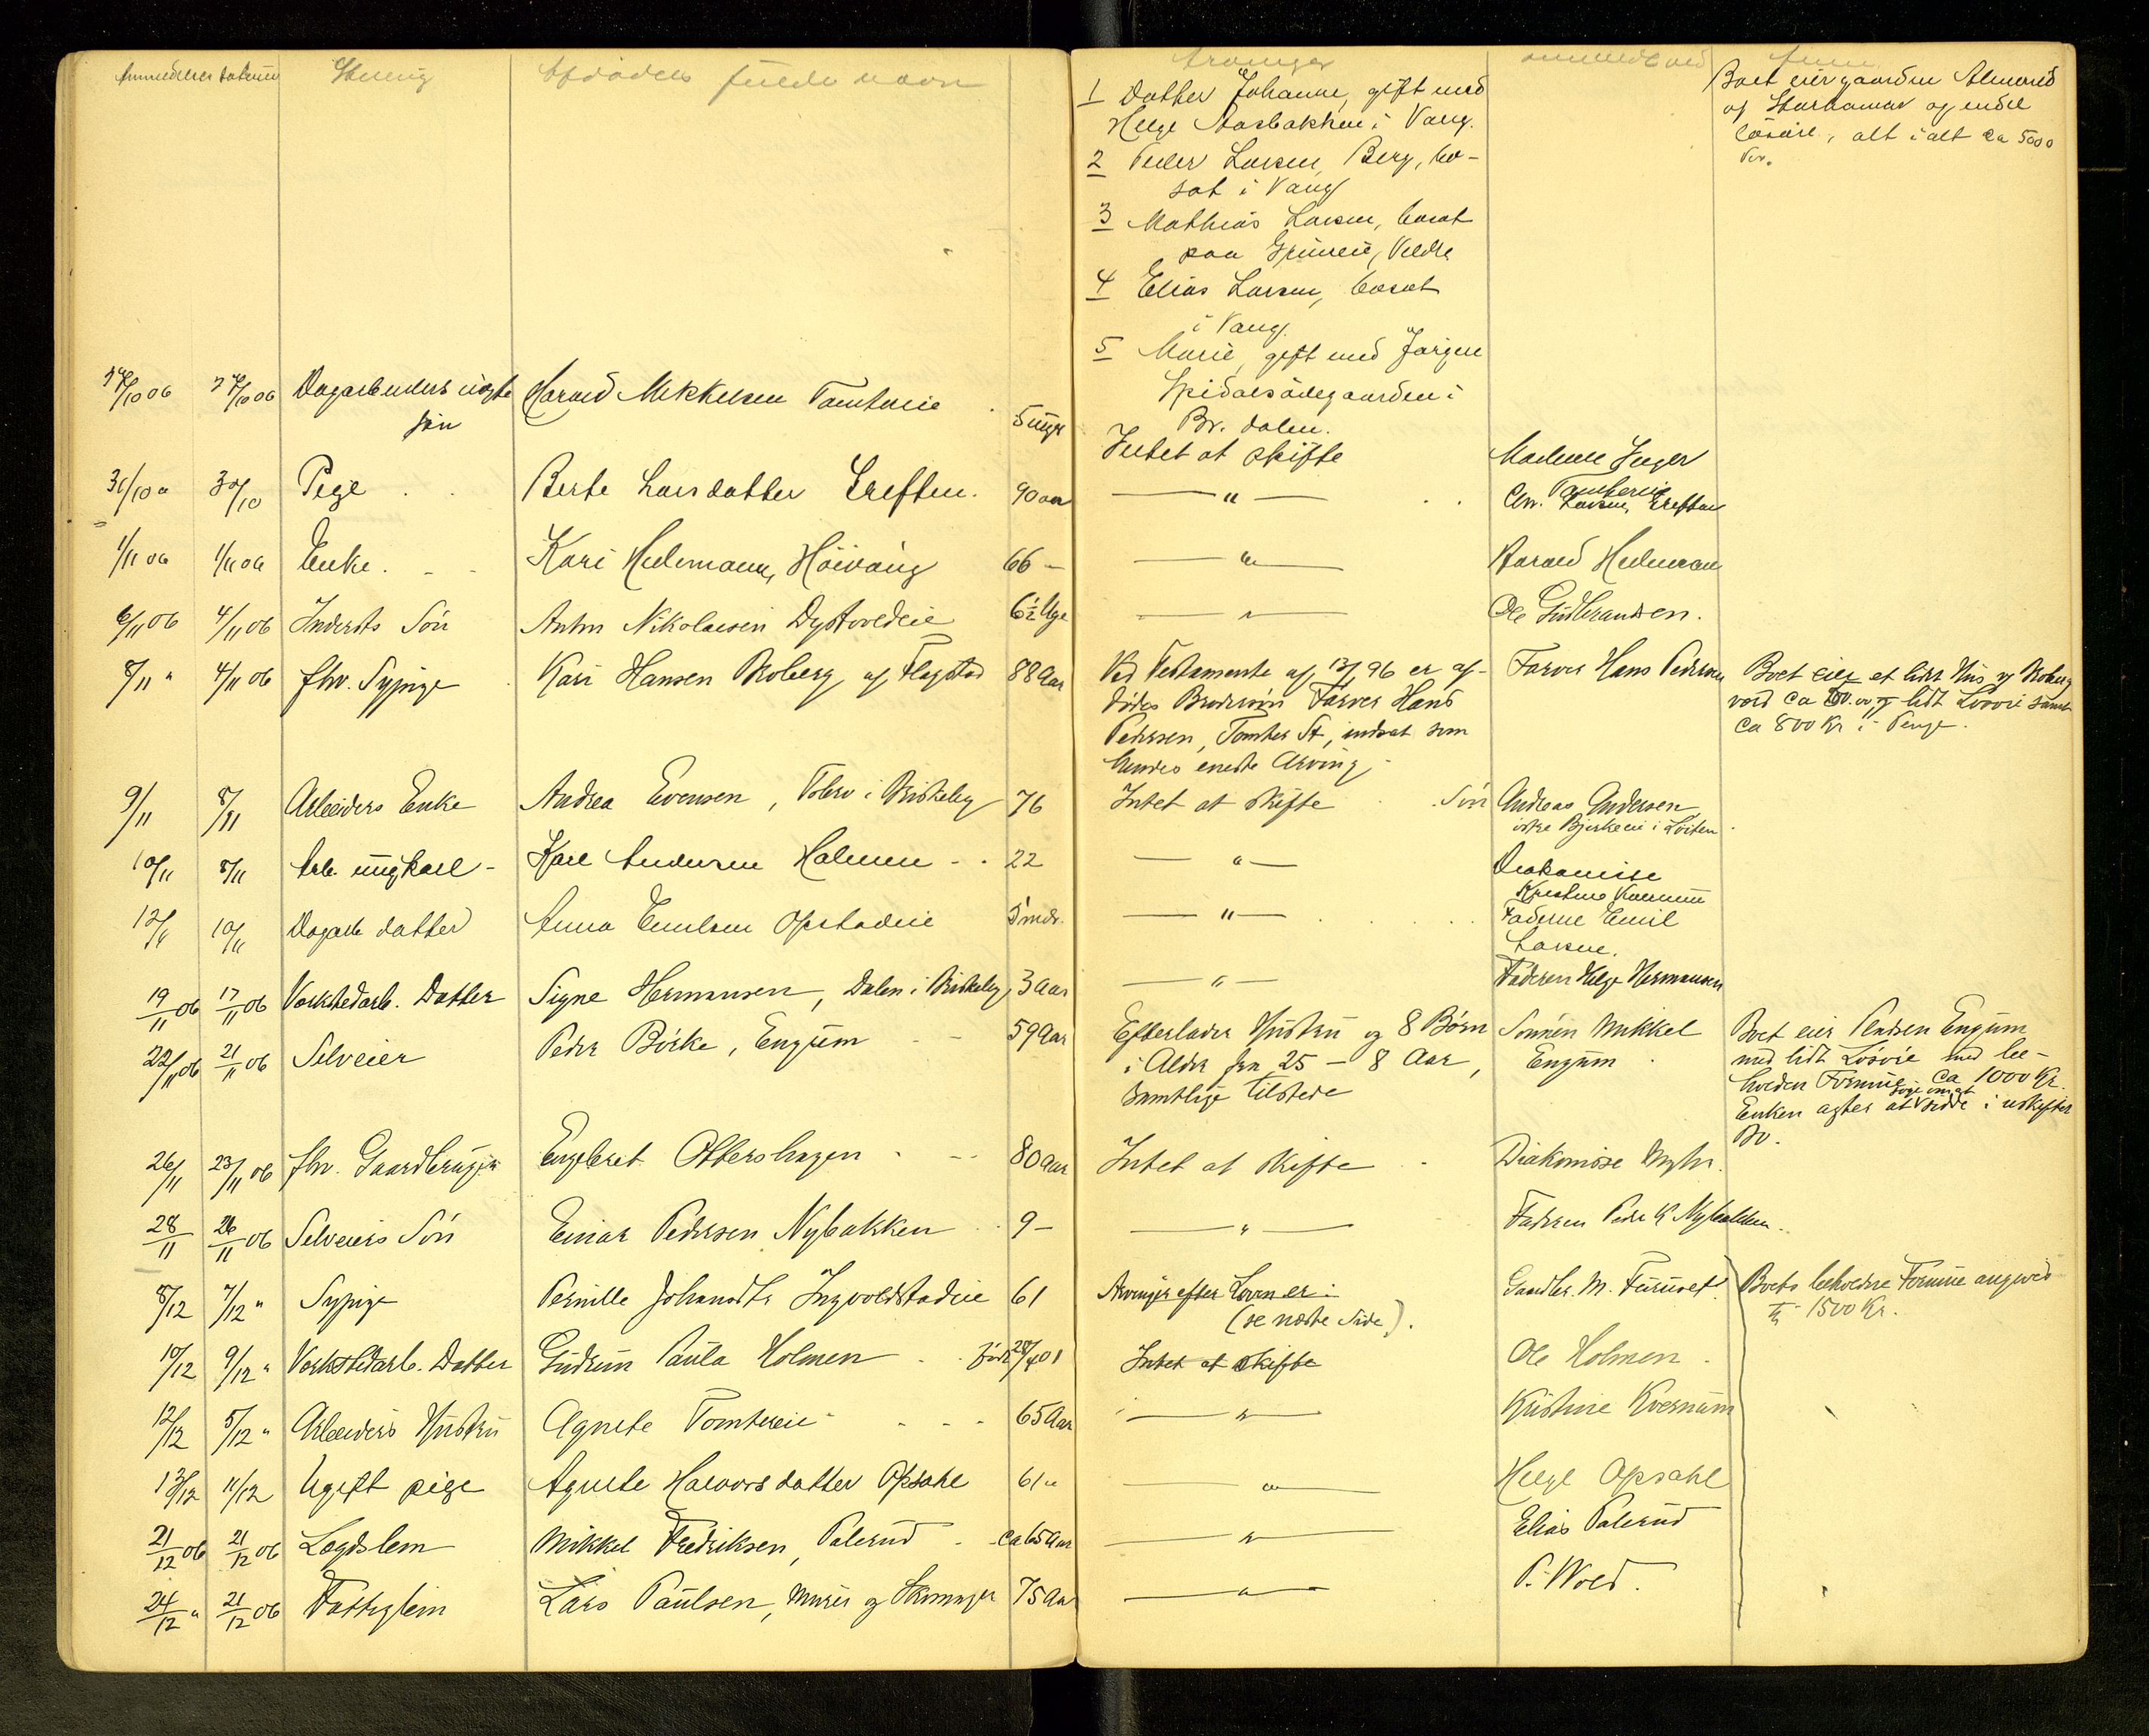 Anmeldelses datum Stilling Afdødes fulde navn Arvinger anmeldt ved Anm.
1 Datter Johanne, gift med
Helge Aasbakken i Vang.
2 Peder Larsen, Berg, bo-
sat i Vang
3 Mathias Larsen, bosat
paa Veldre
4 Elias Larsen, bosat
i Vang.
5 Marie, gift med Jørgen
i
Br. dalen.
Boet eier gaarden
af Storhamar og endel
løsøre, alt i alt ca 5000
Kr.
10 06 10 06 Dagarbeiders
søn Harald Mikkelsen 5 uger Intet at skifte Marlene Inger
31/10 " 30/10 Pige Berte Larsdatter Greften. 90 aar — " — Chr. Larsen, Greften
1/11 06 1/11 06 Enke. Kari Hedemann, Høivang 66 — — " — Harald Hedemann
6/11 06 4/11 06 Indersts Søn Anton Nikolaisen Dystvoldeie 6½ Uge — " — Ole Gudbrandsen.
8/11 " 4/11 06 fhv. Sypige Kari Hansen Broberg af Flagstad 88 Aar Ved Testamente af 13/1 96 er af- Farver Hans Pedersen Boet eier et lidet Hus af Broberg
dødes Brodersøn Farver Hans
Pedersen, Tomter St, indsat som
hendes eneste Arving.
værd ca og lidt Løsøre samt
ca 800 Kr i Penge.
9/11 8/11 Arbeiders Enke Andrea Evensen, i Briskeby 76 Intet at skifte Søn Andreas Andersen
østre Bjerkeeie i Løiten.
10/11 8/11 Arb. ungkarl - Karl Andersen Holmen 22 — " — Diakonisse
Kristine Kvernum
12/11 10/11 Dagarb datter Anna Emilsen Opstadeie 5 mdr. — " — Faderne Emil
Larsen.
19/11 06 17/11 06 Værkstedarb. Datter Signe Hermansen, Dalen i Briskeby, 3 Aar — " — Faderen Helge Hermansen
22/11 06 21/11 06 Selveier Peder Børke, Engum 59 Aar Efterlader Hustru og 8 Børn Sønnen Mikkel Boet eier Pladsen Engum
i Alder fra 25 - 8 Aar, Engum med lidt Løsøre med be-
samtlige tilstede
holden Formue ca 1000 Kr.
Enken agter at sidde i uskiftet
Bo.
26/11 23/11 06 fhv. Gaardbruger Engebret Ottershagen 80 Aar Intet at skifte Diakonisse Myhr.
28/11 26/11 06 Selveiers Søn Einar Pedersen Nybakken 9 — — " — Faderen Peder K Nybakken.
8/12 7/12 " Sypige Pernille Johansdtr Ingvoldstadeie 61 Arvinger efter Loven er: Gaardbr. M. Furuset Boets beholdne Formue angives
(se næste Side). til 1500 Kr.
10/12 9/12 " Værkstedarb. Datter Gudrun Paula Holmen født 28/4 01 Intet at skifte Ole Holmen
12/12 5/12 " Arbeiders Hustru Agnete Tomtereie 65 Aar — " — Kristine Kvernum
13/12 11/12 Ugift pige Agnete Halvorsdatter Opsahl 61 " — " — Helge Opsahl
21/12 06 21/12 06 Lægdslem Mikkel Fredriksen, Palerud ca 65 Aar — " — Elias Palerud
24/12 " 21/12 06 Fattiglem Lars Paulsen, Murer og 75 Aar — " — P. Wold.